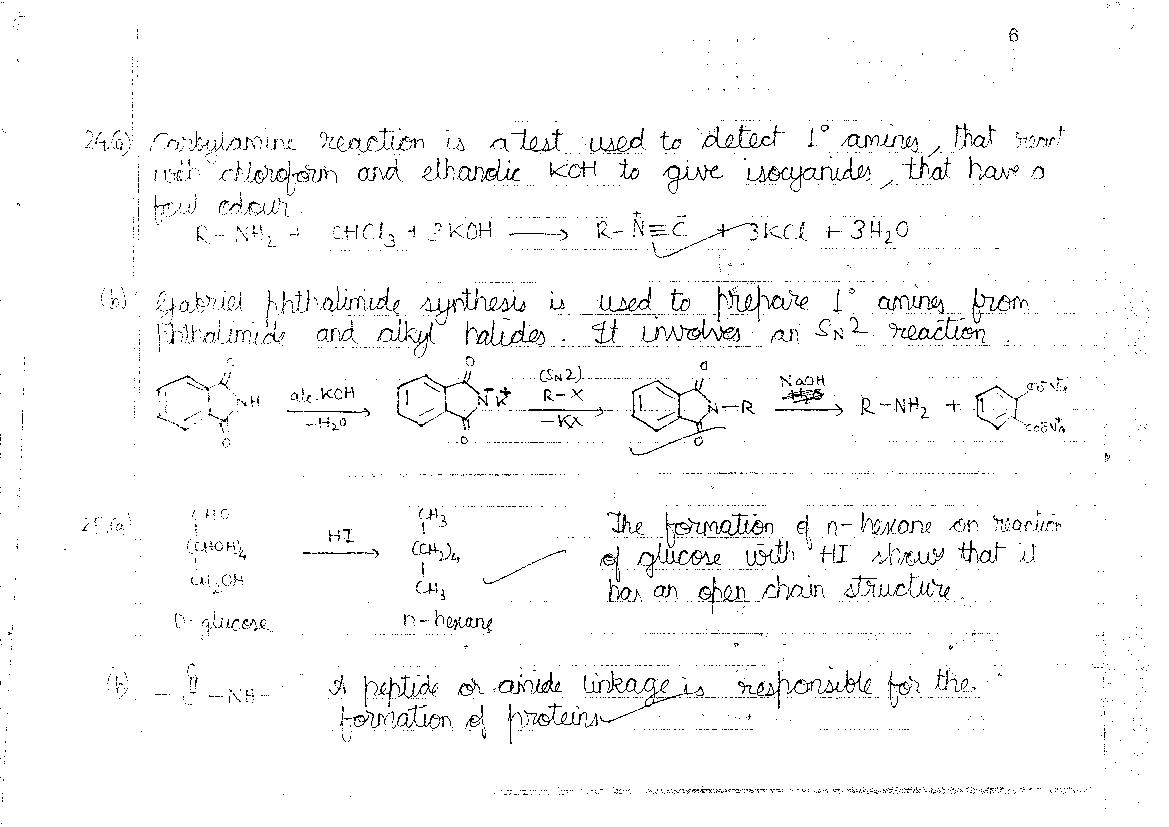 6
24.(a) Carbylamine reaction is a test used to detect 1° amines, that react
with chloroform and ethanolic KOH to give isocyanides, that have a
foul odour.
R-NH₂ + CHCl₃ + 3KOH ⟶ R-N⁺≡C⁻ + 3KCl + 3H₂O
(b) Gabriel phthalimide synthesis is used to prepare 1° amines from
Phthalimide and alkyl halides. It involves an SN2 reaction.
O O O (SN2) NaOH COŌNa
NH alc. KOH N⁻K⁺ R-X N-R R-NH₂ + COŌNa
-H₂O -KX
O O O
25.(a) CHO CH₃ The formation of n-hexane on reaction
(CHOH)₄ HI (CH₂)₄ of glucose with HI shows that it
CH₂OH CH₃ has an open chain structure.
D-glucose n-hexane
(b) O
-C-NH- A peptide or amide linkage is responsible for the
formation of proteins